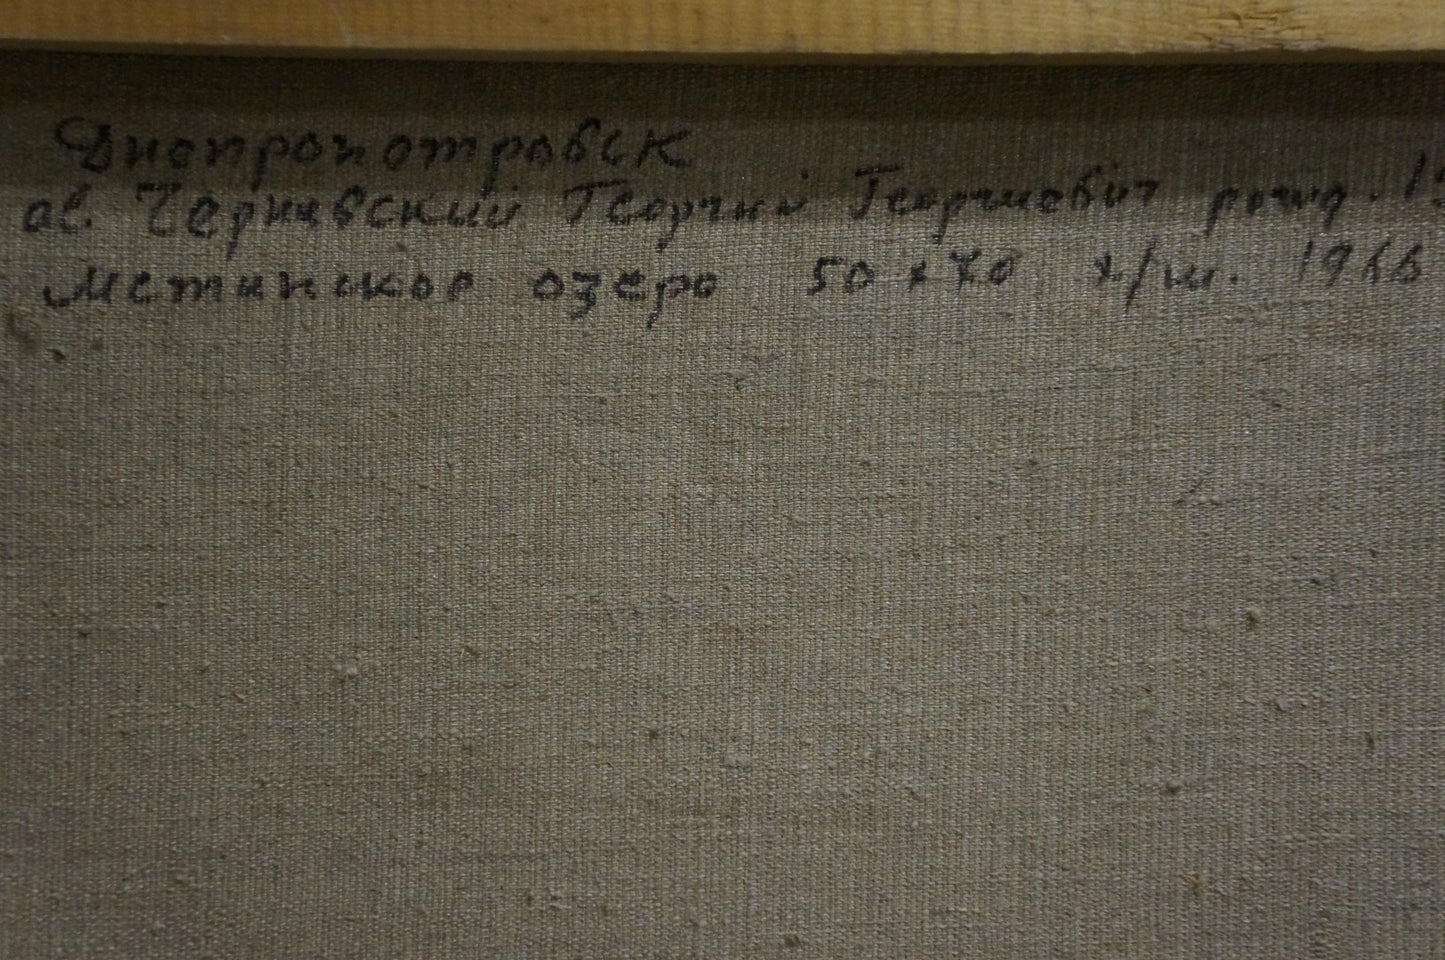 Днепропетровск
ав. Чернавский Георгий Георгиевич рожд. 19
Мстинское озеро 50 х 70 х/м. 1966